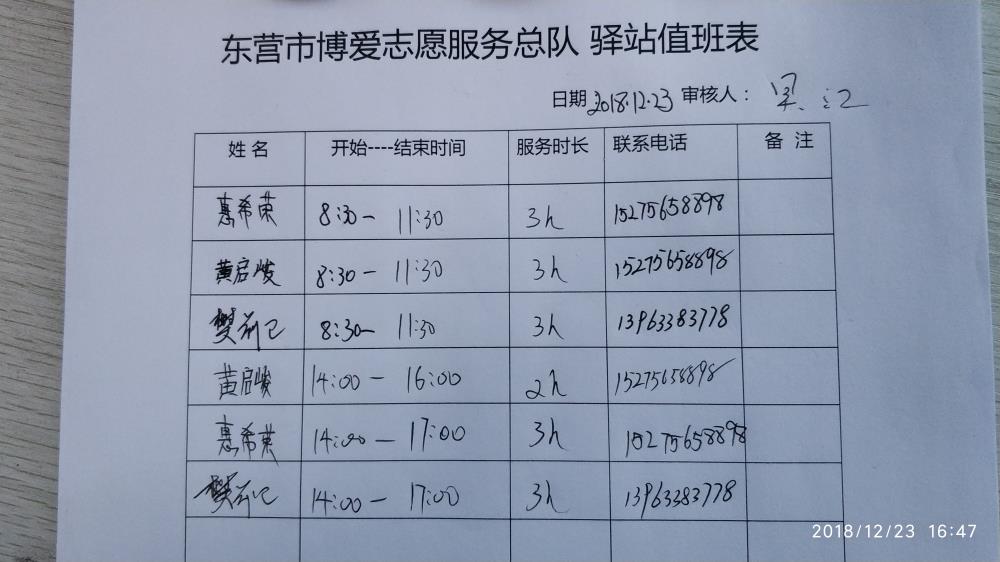 东营市博爱志愿服务总队 驿站值班表
日期 2018.12.23 审核人：
姓名 开始----结束时间 服务时长 联系电话 备 注
惠希荣 8:30— 11:30 3h 15275658898
黄启峻 8:30— 11:30 3h 15275658898
樊 8:30— 11:30 3h 13963383778
黄启峻 14:00 — 16:00 2h 15275658898
惠希荣 14:00— 17:00 3h 15275658898
樊 14:00 — 17:00 3h 13963383778
2018/12/23 16:47